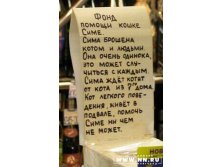 Фонд
помощи кошке
Симе.
Сима брошена
котом и людьми.
Она очень одинока,
это может слу-
читься с каждым.
Сима ждёт котят
от кота из 7го дома.
Кот легкого пове-
дения, живёт в
подвале, помочь
Симе ни чем
не может.
www.nn.ru